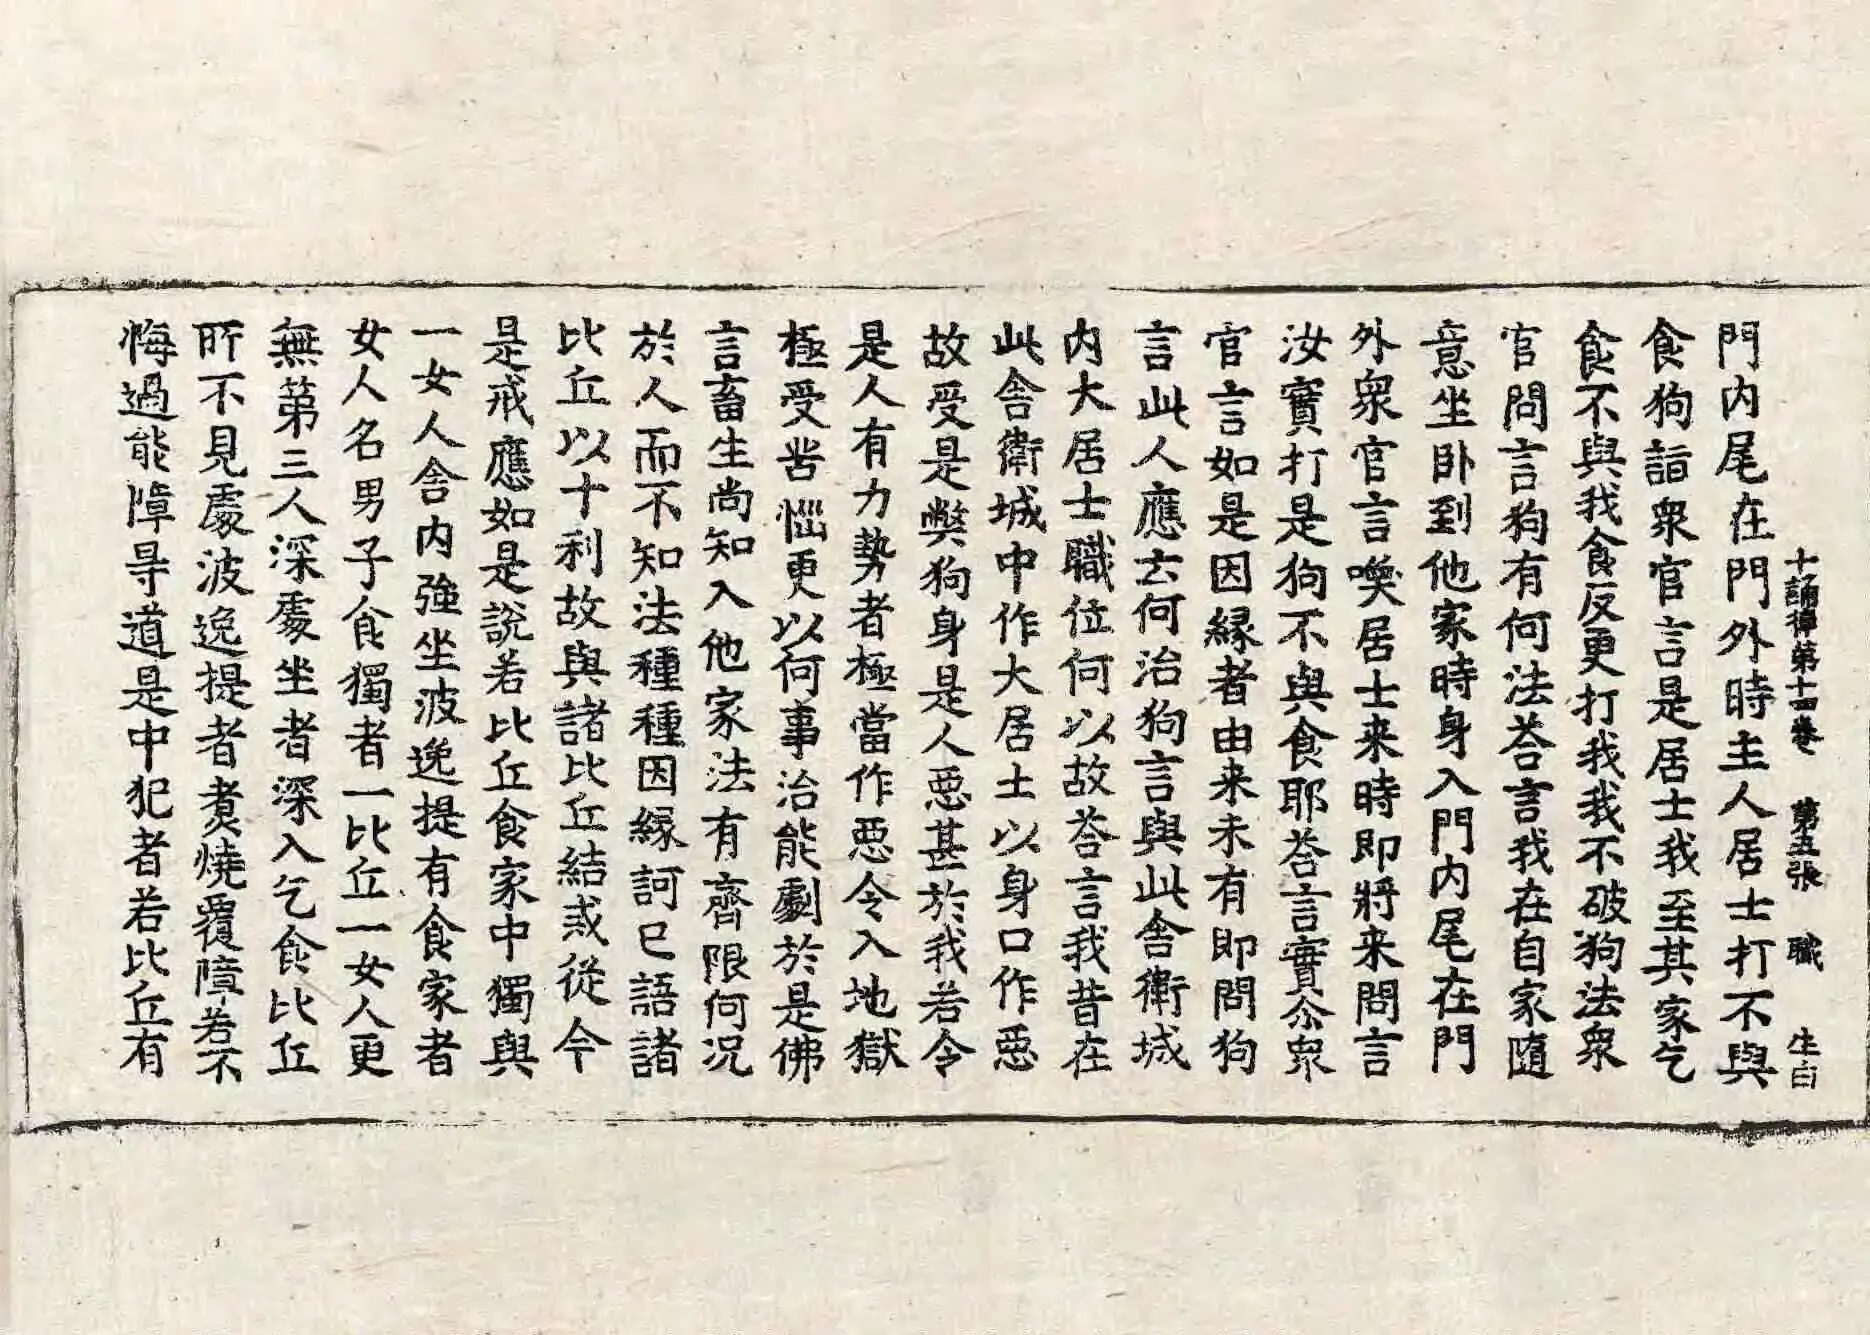 十誦律第十四卷 第五張 職 生白
門内尾在門外時主人居士打不與
食狗詣衆官言是居士我至其家乞
食不與我食反更打我我不破狗法衆
官問言狗有何法荅言我在自家随
意坐卧到他家時身入門内尾在門
外衆官言喚居士来時即將来問言
汝實打是狗不與食耶荅言實尒衆
官言如是因縁者由来未有即問狗
言此人應云何治狗言與此舍衛城
内大居士職位何以故荅言我昔在
此舍衛城中作大居士以身口作惡
故受是獘狗身是人惡甚於我若令
是人有力勢者極當作惡令入地獄
極受苦惱更以何事治能劇於是佛
言畜生尚知入他家法有齊限何况
於人而不知法種種因縁訶已語諸
比丘以十利故與諸比丘結戒從今
是戒應如是說若比丘食家中獨與
一女人舍内強坐波逸提有食家者
女人名男子食獨者一比丘一女人更
無第三人深處坐者深入乞食比丘
所不見處波逸提者煑燒覆障若不
悔過能障㝵道是中犯者若比丘有